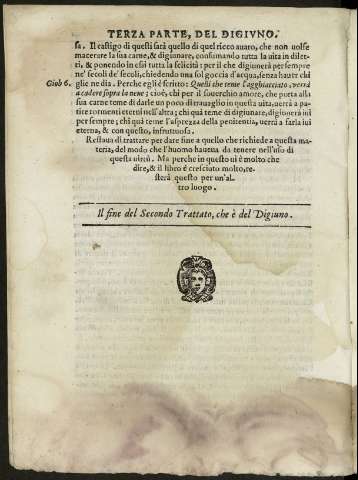 TERZA PARTE, DEL DIGIVNO.
sa. Il castigo di questi sarà quello di quel ricco auaro, che non uolse
macerare la sua carne, & digiunare, consumando tutta la uita in dilet-
ti, & ponendo in essi tutta la felicità: per il che digiunerà per sempre
ne' secoli de' secoli, chiedendo una sol goccia d'acqua, senza hauer chi
Giob 6. glie ne dia. Perche egli è scritto: Quelli che teme l'agghiacciato, verrà
a cadere sopra la neue; cioè, chi per il souerchio amore, che porta alla
sua carne teme di darle un poco di trauaglio in questa uita, uerrà a pa-
tire tormenti eterni nell'altra; chi quà teme di digiunare, digiunerà iui
per sempre; chi quà teme l'asprezza della penitentia, uerrà a farla iui
eterna, & con questo, infruttuosa.
Restaua di trattare per dare fine a quello che richiede a questa ma-
teria, del modo che l'huomo haueua da tenere nell'uso di
questa uirtù. Ma perche in questo ui è molto che
dire, & il libro è cresciuto molto, re-
sterà questo per un'al-
tro luogo.
Il fine del Secondo Trattato, che è del Digiuno.